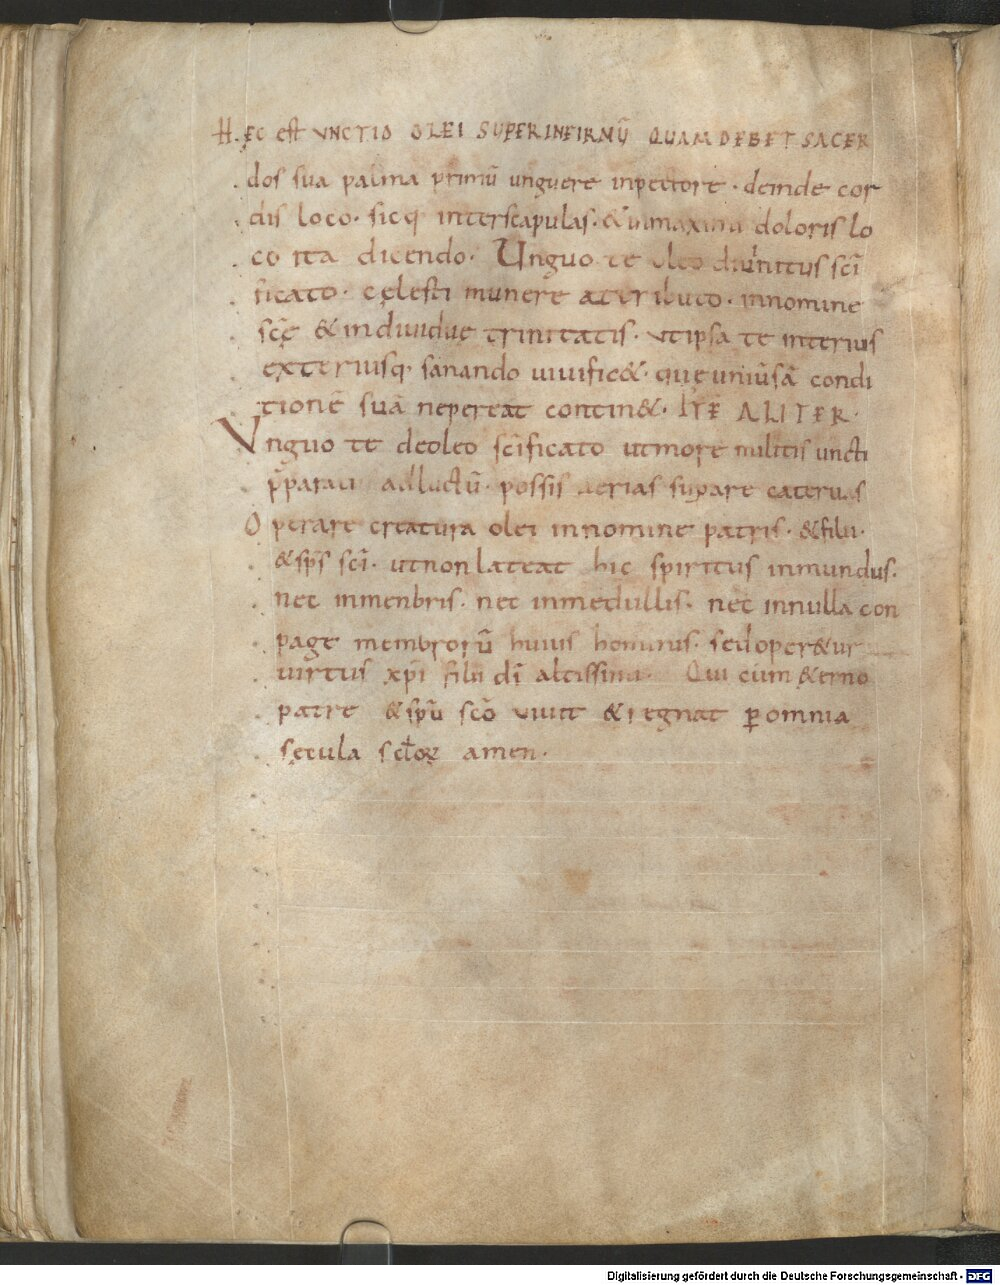 HĘC EST VNCTIO OLEI SUPER INFIRMŪ QUAM DEBET SACER
dos sua palma primū unguere inpectore · deinde cor
dis loco · sicq; interscapulas · & inmaxima doloris lo
co ita dicendo · Unguo te oleo diuinitus scī
ficato · cęlesti munere attributo · innomine
scę̄ & indiuidue trinitatis · vt ipsa te interius
exteriusq; sanando uiuific& · que uniuersā condi
tionē suā nepereat contin& · ITE ALITER ·
Vnguo te deoleo scīficato utmore militis uncti
p̄paratus adluctū · possis aerias suꝑare cateruas
Operare creatura olei innomine patris · & filii ·
& sp̄s scī · utnon lateat hic spiritus inmundus ·
nec inmenbris · nec inmedullis · nec innulla con
page membrorū huius hominis · sedoper&ur
uirtus xp̄i filii dī altissimi · Qui cum &erno
patre & sp̄u scō viuit & regnat ꝑ omnia
secula scl̄oꝝ amen ·
Digitalisierung gefördert durch die Deutsche Forschungsgemeinschaft - DFG